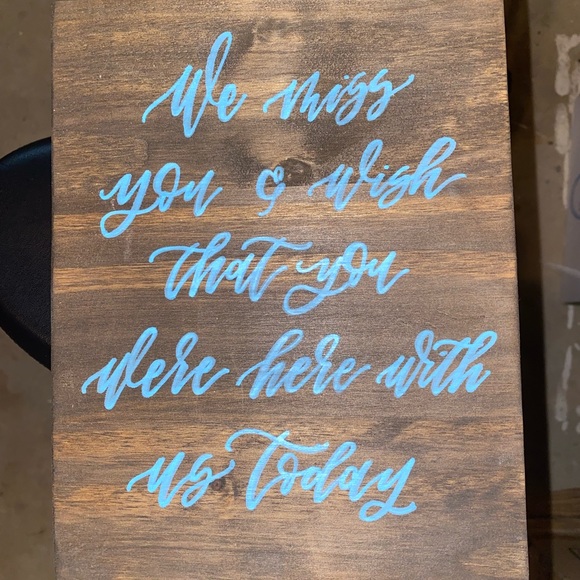 We miss
you & wish
that you
were here with
us today